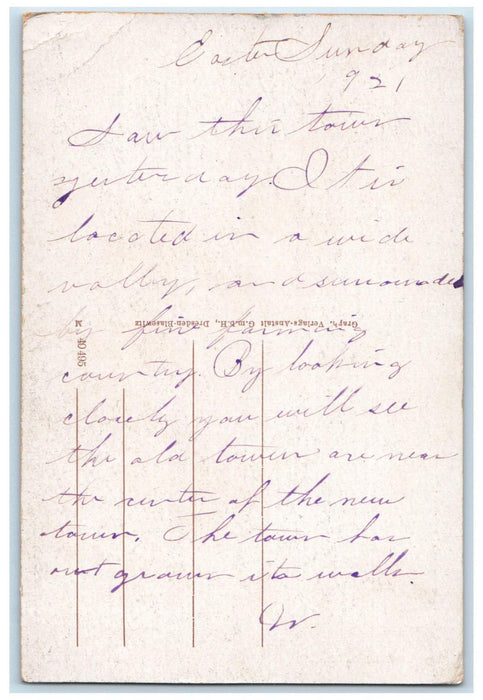 Easter Sunday
921
Saw this town
yesterday. It is
located in a wide
valley, and surrounded
by fine farming
country. By looking
closely you will see
the old towers are near
the center of the new
town. The town has
out grown its walls.
W.
Graph. Verlags-Anstalt G.m.b.H., Dresden-Blasewitz
M 40 495